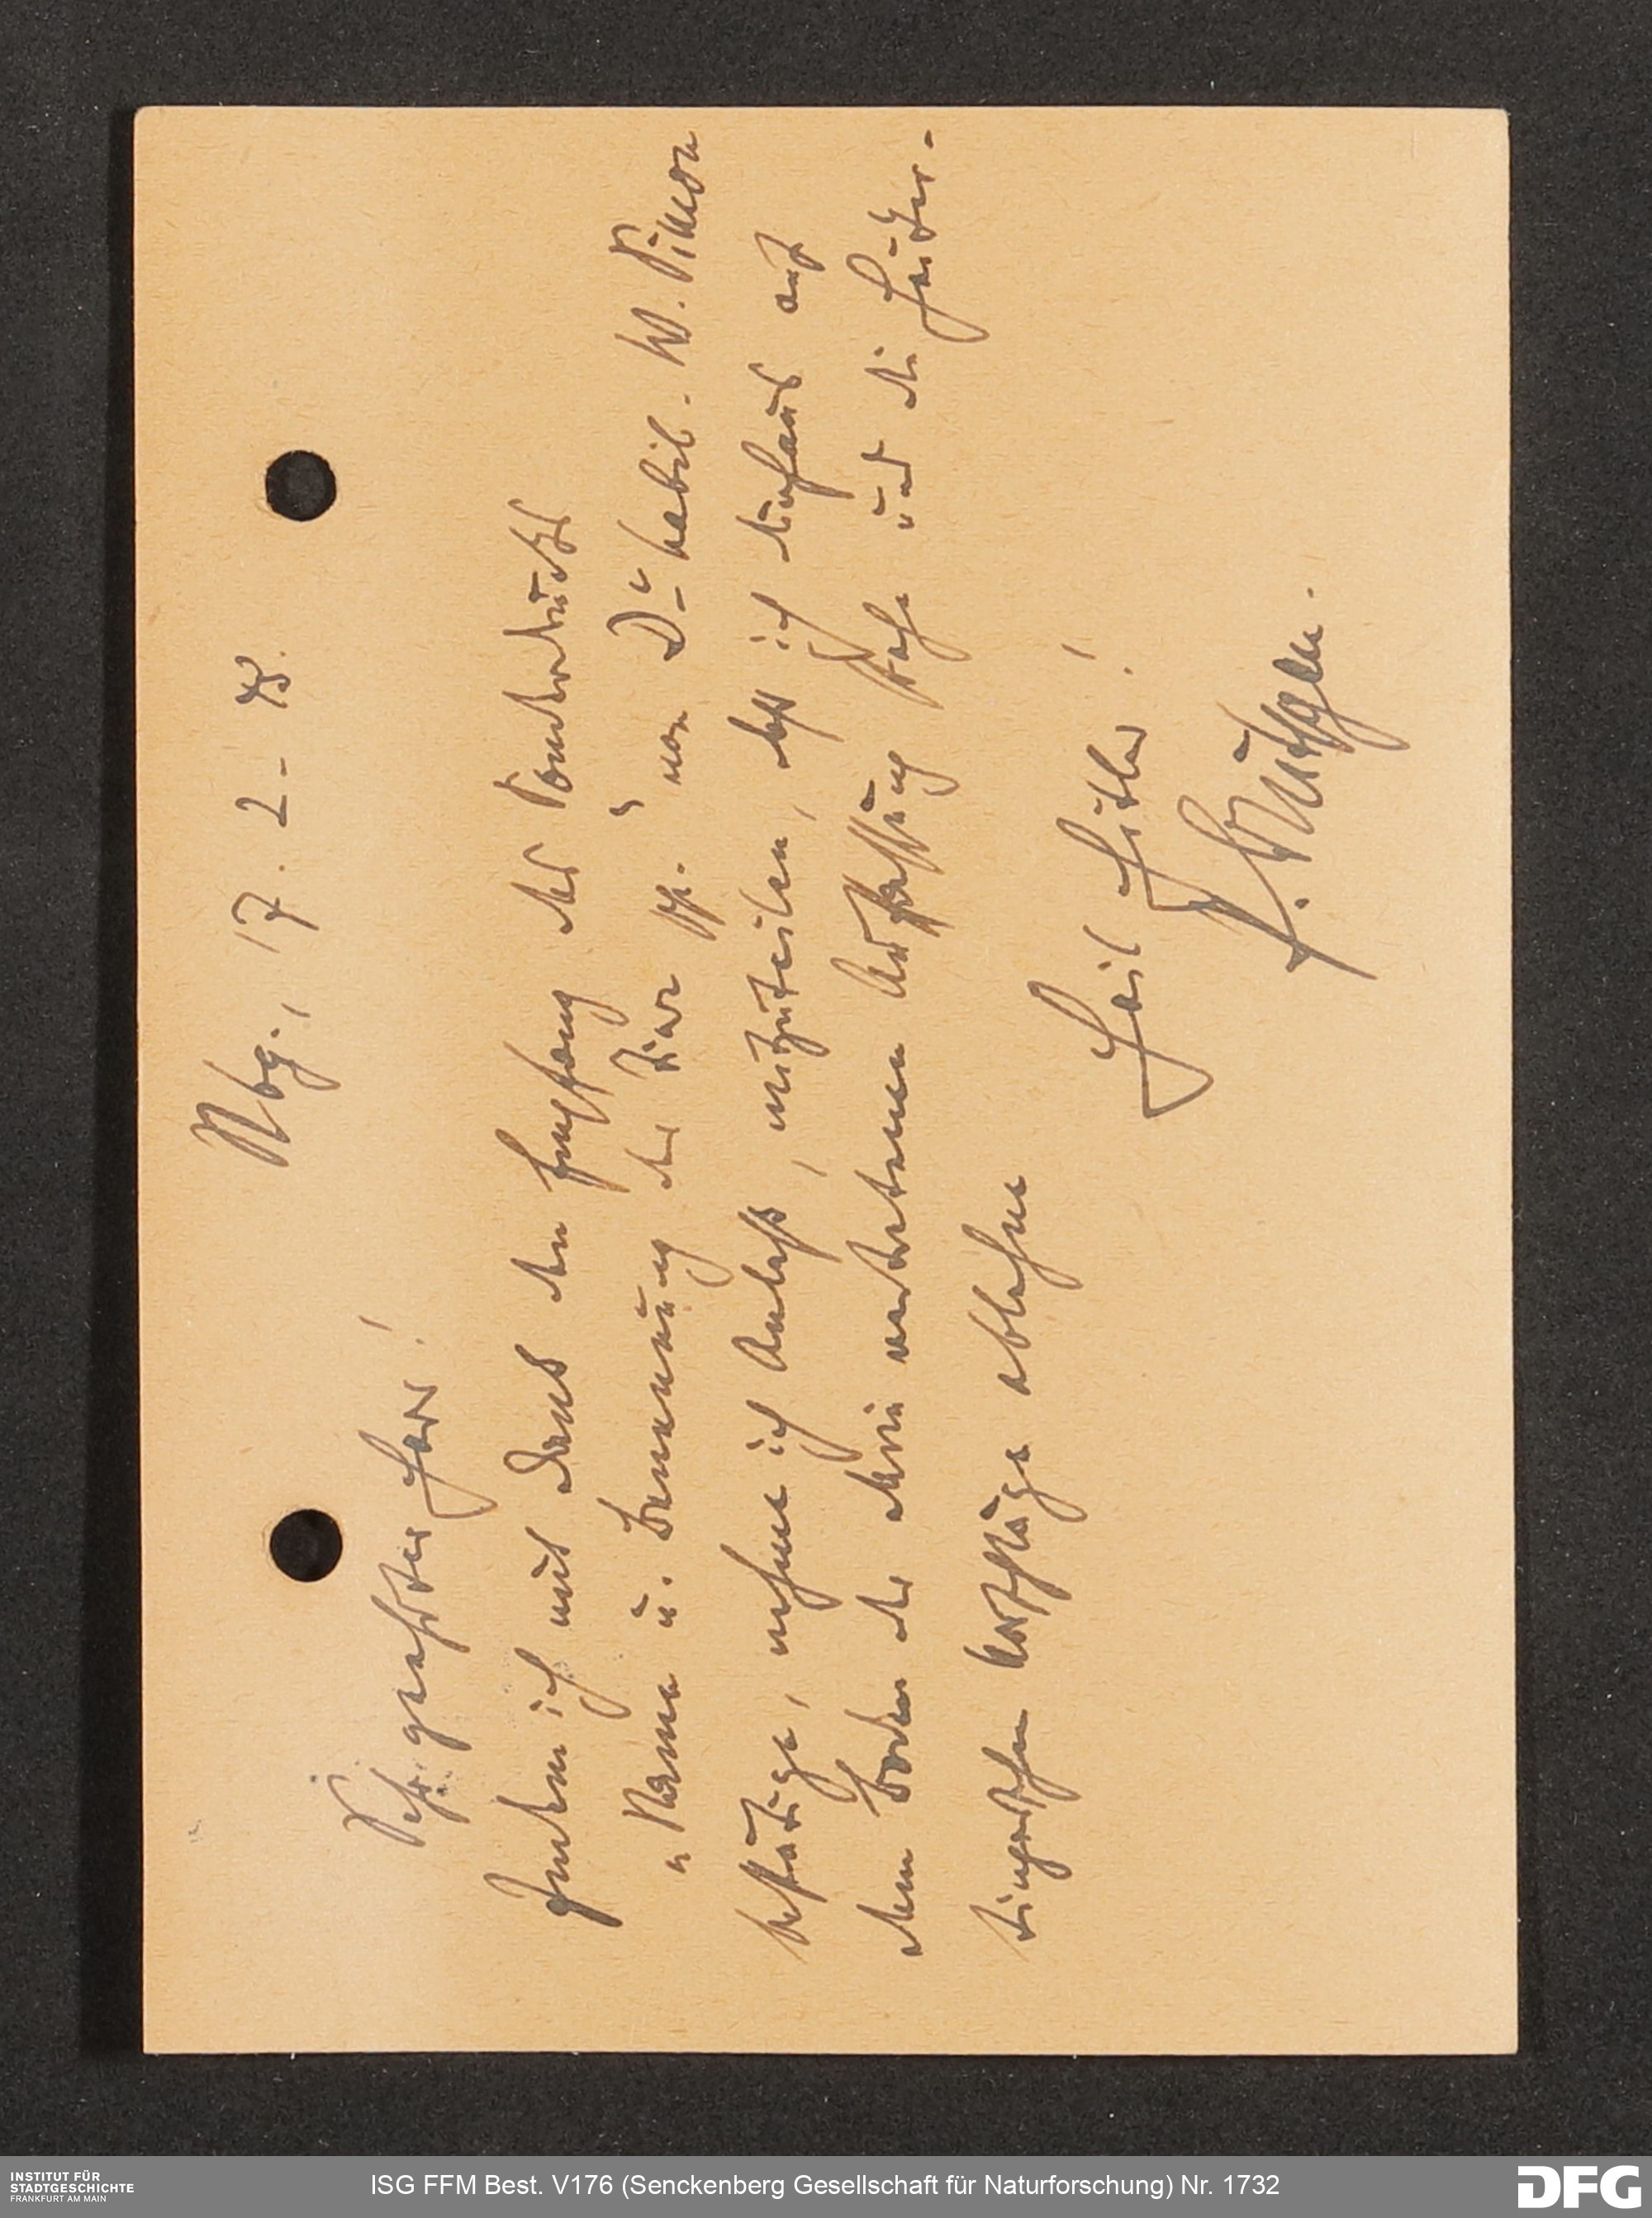 Nbg., 17. 2. 43.
Sehr geehrter Herr!
Indem ich mit Dank den Empfang des Sonderdrucks
„Name u. Benennung der Tiere pp." von Dr habil. W. Simon
bestätige, nehme ich Anlaß, mitzuteilen, daß ich durchaus auf
dem Boden der darin vertretenen Auffassung stehe und die
tingerschen Vorschläge ablehne
Heil Hitler!
INSTITUT FÜR
STADTGESCHICHTE
FRANKFURT AM MAIN
ISG FFM Best. V176 (Senckenberg Gesellschaft für Naturforschung) Nr. 1732
DFG